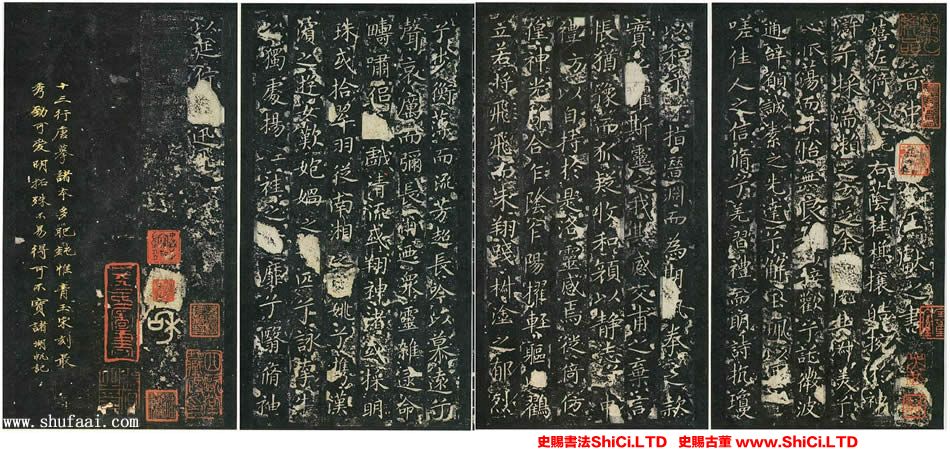 晉王獻之書
嬉左倚采右蔭桂旗攘皓神
滸兮採湍瀨之玄芝余情美兮
心振蕩而不怡無良歡兮託微波
通辭願誠素之先達兮解玉珮
嗟佳人之信脩兮羌習禮而明詩抗瓊
以和予兮指潛淵而為期執拳之款
實斯靈之我欺感交甫之棄言
悵猶豫而狐疑收顏以靜志兮
禮防以自持於是洛靈感焉徙倚仿
徨神光離合乍陰乍陽擢輕軀鶴
立若將飛飛而未翔踐椒塗之郁烈
兮步蘅薄而流芳超長吟以慕遠兮
聲哀厲而彌長爾迺衆靈雜遝命
疇嘯侶戲清流或翔神渚或採明
珠或拾翠羽從南湘之姚兮攜漢
濱之遊女歎妃媧之匹兮詠
之獨處揚輕袿之靡兮翳脩袖
以延佇迅飛
十三行唐摹諸本多肥鈍惟青玉宋刻最
秀勁可愛明拓殊不易得可不寶諸帆記
www.shufaai.com
史賜書法ShiCi.LTD 史賜古董 www.ShiCi.LTD